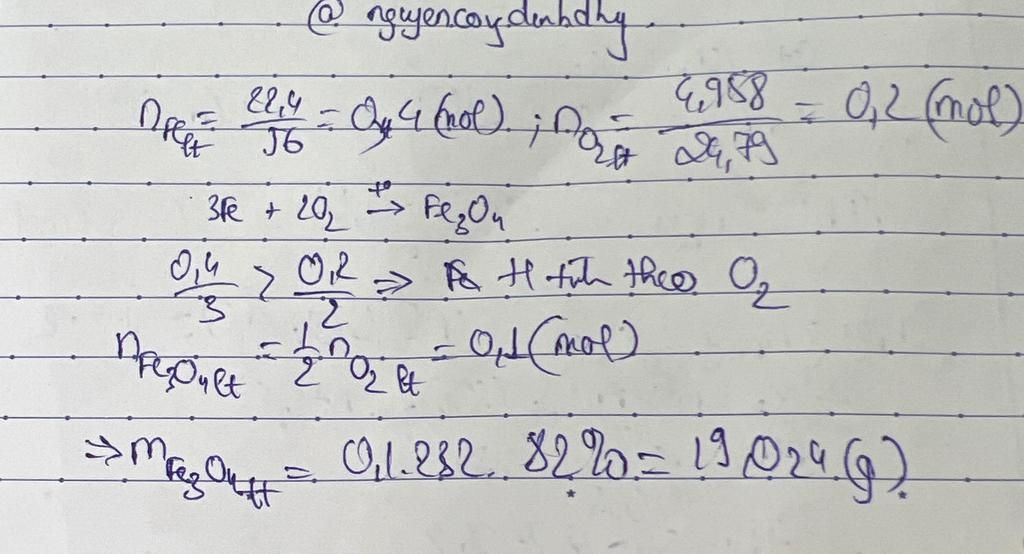 @ nguyencaydinhdhy
n Fe lt = 22,4/56 = 0,4 (mol) ; n O2 lt = 4,958/24,79 = 0,2 (mol)
3Fe + 2O2 t° → Fe3O4
0,4/3 > 0,2/2 ⇒ H tính theo O2
n Fe3O4 lt = 1/2 n O2 lt = 0,1 (mol)
⇒ m Fe3O4 tt = 0,1.232. 82% = 19,024 (g).